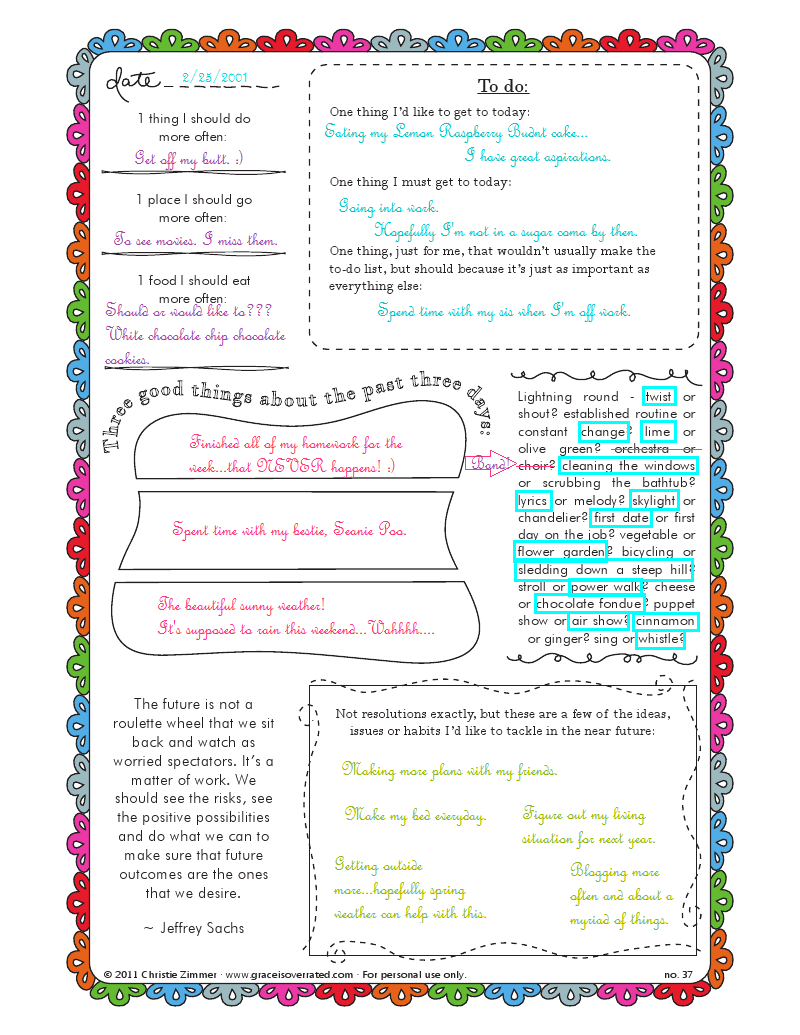 date 2/25/2001
1 thing I should do
more often:
Get off my butt. :)
1 place I should go
more often:
To see movies. I miss them.
1 food I should eat
more often:
Should or would like to???
White chocolate chip chocolate
cookies.
To do:
One thing I'd like to get to today:
Eating my Lemon Raspberry Budnt cake...
I have great aspirations.
One thing I must get to today:
Going into work.
Hopefully I'm not in a sugar coma by then.
One thing, just for me, that wouldn't usually make the
to-do list, but should because it's just as important as
everything else:
Spend time with my sis when I'm off work.
Three good things about the past three days:
Finished all of my homework for the
week...that NEVER happens! :)
Spent time with my bestie, Seanie Poo.
The beautiful sunny weather!
It's supposed to rain this weekend...Wahhhh....
Band!
Lightning round - twist or
shout? established routine or
constant change? lime or
olive green? orchestra or
choir? cleaning the windows
or scrubbing the bathtub?
lyrics or melody? skylight or
chandelier? first date or first
day on the job? vegetable or
flower garden? bicycling or
sledding down a steep hill?
stroll or power walk? cheese
or chocolate fondue? puppet
show or air show? cinnamon
or ginger? sing or whistle?
The future is not a
roulette wheel that we sit
back and watch as
worried spectators. It's a
matter of work. We
should see the risks, see
the positive possibilities
and do what we can to
make sure that future
outcomes are the ones
that we desire.
~ Jeffrey Sachs
Not resolutions exactly, but these are a few of the ideas,
issues or habits I'd like to tackle in the near future:
Making more plans with my friends.
Make my bed everyday.
Figure out my living
situation for next year.
Getting outside
more...hopefully spring
weather can help with this.
Blogging more
often and about a
myriad of things.
© 2011 Christie Zimmer · www.graceisoverrated.com · For personal use only.
no. 37